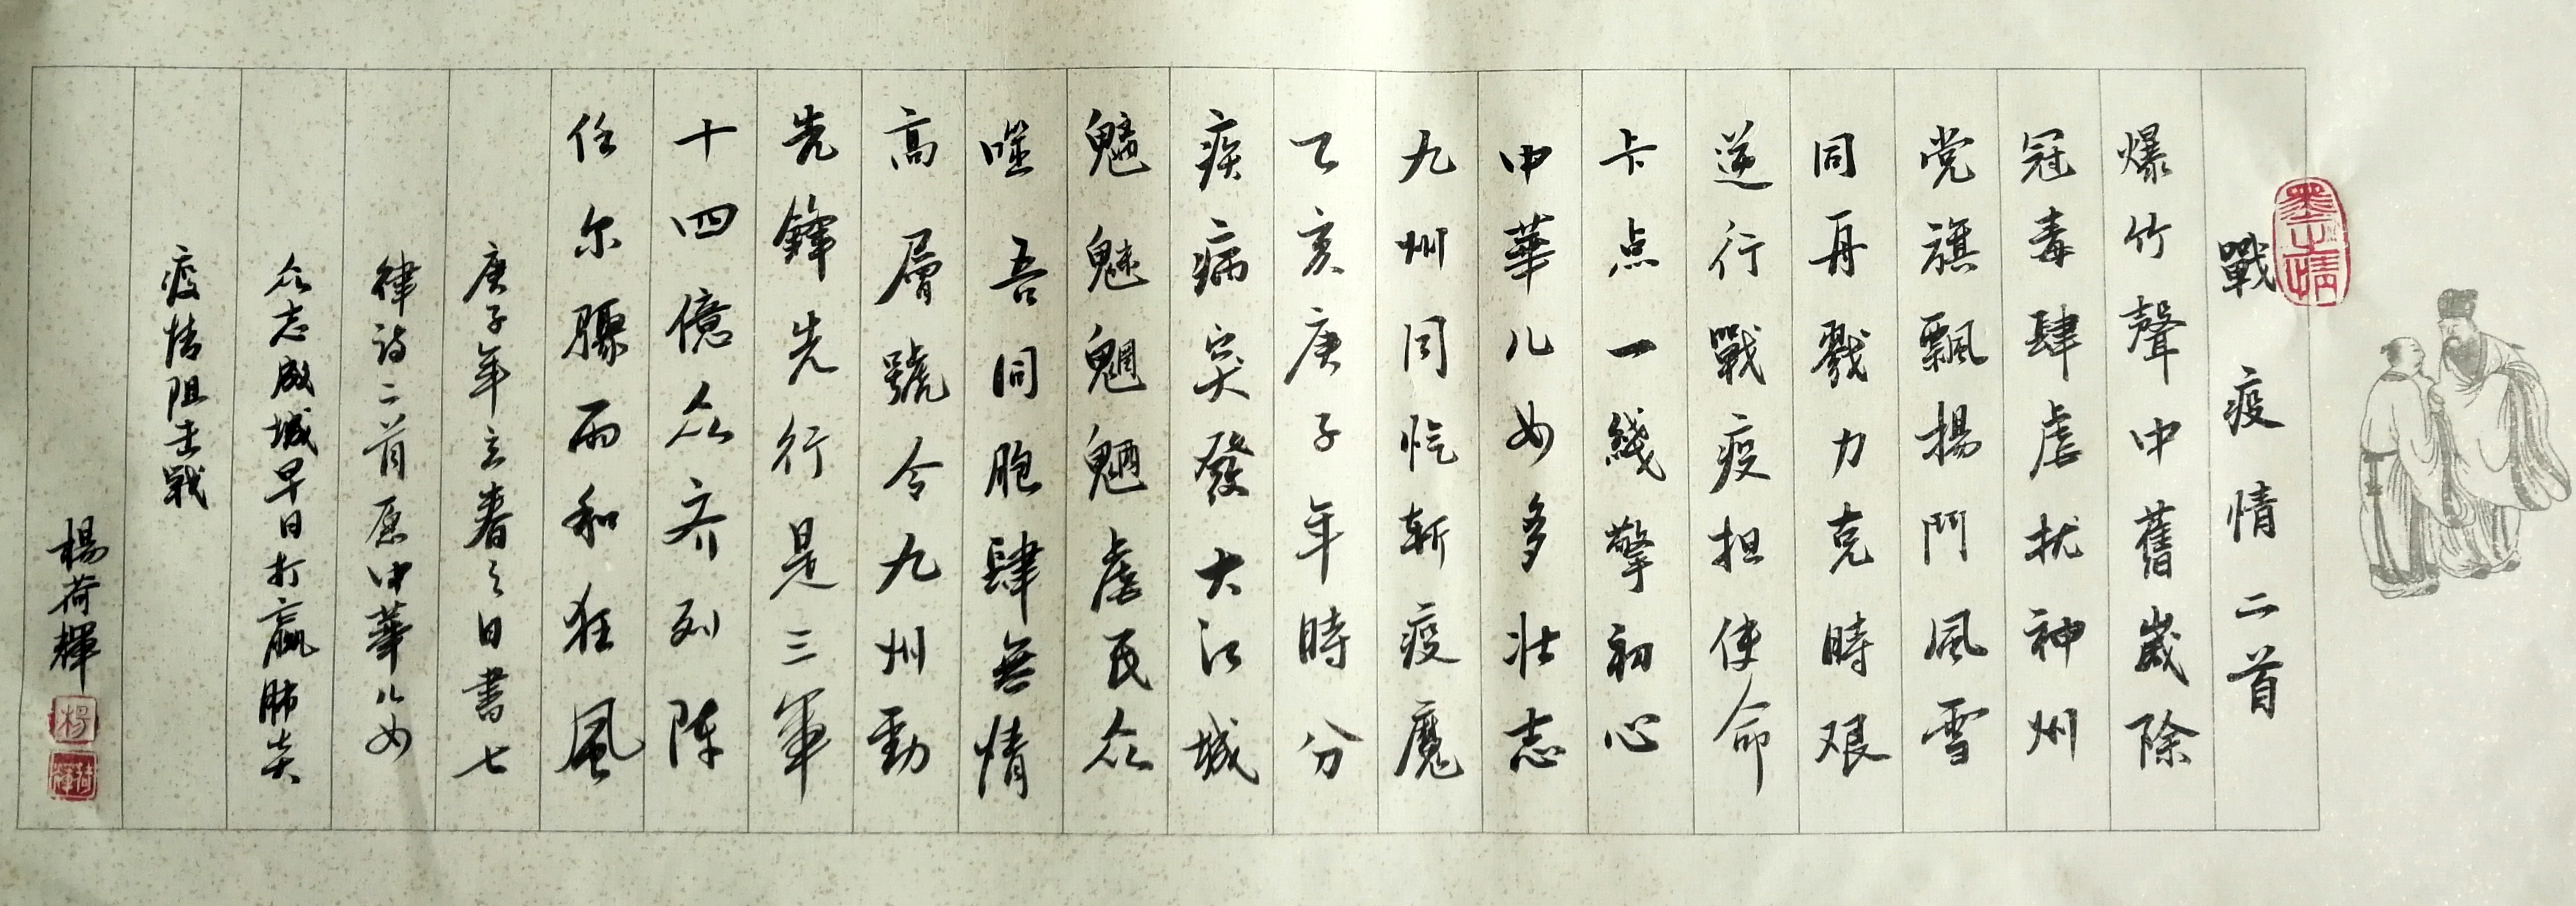 戰疫情二首
爆竹聲中舊歲除
冠毒肆虐扰神州
党旗飄揚鬥風雪
同舟戮力克時艰
逆行戰疫担使命
卡点一綫擎初心
中華儿女多壮志
九州同忾斬疫魔
乙亥庚子年時分
疾病突發大江城
魑魅魍魎虐民众
噬吾同胞肆無情
高層號令九州動
先鋒先行是三軍
十四億众齐列陣
任尔驟雨和狂風
庚子年立春之日書七
律诗二首愿中華儿女
众志成城早日打赢肺炎
疫情阻击戰
楊荷輝
墨情
楊
荷輝